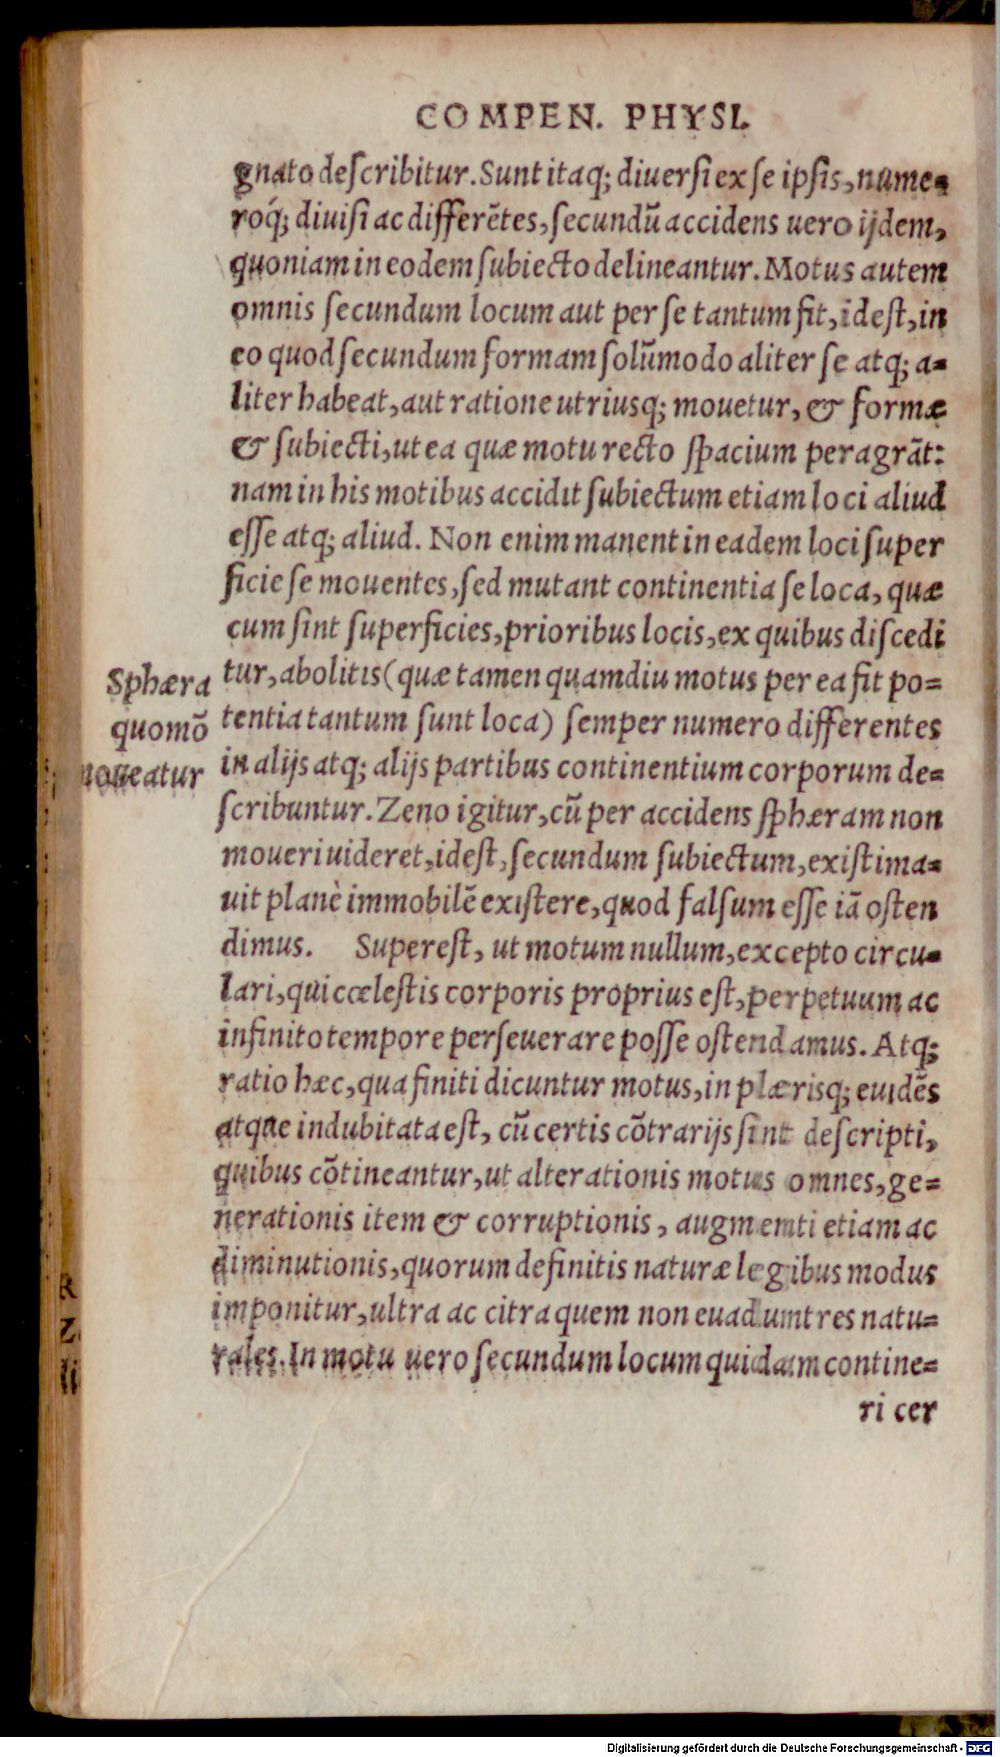 COMPEN. PHYSI.
gnato deſcribitur. Sunt itaq; diuerſi ex ſe ipſis, nume-
roq́; diuiſi ac differẽtes, ſecundũ accidens uero ijdem,
quoniam in eodem ſubiecto delineantur. Motus autem
omnis ſecundum locum aut per ſe tantum fit, id eſt, in
eo quod ſecundum formam ſolũmodo aliter ſe atq; a-
liter habeat, aut ratione utriusq; mouetur, & formæ
& ſubiecti, ut ea quæ motu recto ſpacium peragrãt:
nam in his motibus accidit ſubiectum etiam loci aliud
eſſe atq; aliud. Non enim manent in eadem loci ſuper
ficie ſe mouentes, ſed mutant continentia ſe loca, quæ
cum ſint ſuperficies, prioribus locis, ex quibus diſcedi
tur, abolitis (quæ tamen quamdiu motus per ea fit po-
tentia tantum ſunt loca) ſemper numero differentes
in alijs atq; alijs partibus continentium corporum de-
ſcribuntur. Zeno igitur, cũ per accidens ſphæram non
moueri uideret, id eſt, ſecundum ſubiectum, exiſtima-
uit planè immobilẽ exiſtere, quod falſum eſſe iã oſten
dimus. Supereſt, ut motum nullum, excepto circu-
lari, qui cœleſtis corporis proprius eſt, perpetuum ac
infinito tempore perſeuerare poſſe oſtendamus. Atq;
ratio hæc, qua finiti dicuntur motus, in plæriſq; euidẽs
atque indubitata eſt, cũ certis cõtrarijs ſint deſcripti,
quibus cõtineantur, ut alterationis motus omnes, ge-
nerationis item & corruptionis, augmenti etiam ac
diminutionis, quorum definitis naturæ legibus modus
imponitur, ultra ac citra quem non euadunt res natu-
rales. In motu uero ſecundum locum quidam contine-
ri cer
Sphæra
quomõ
moueatur
Digitalisierung gefördert durch die Deutsche Forschungsgemeinschaft - DFG